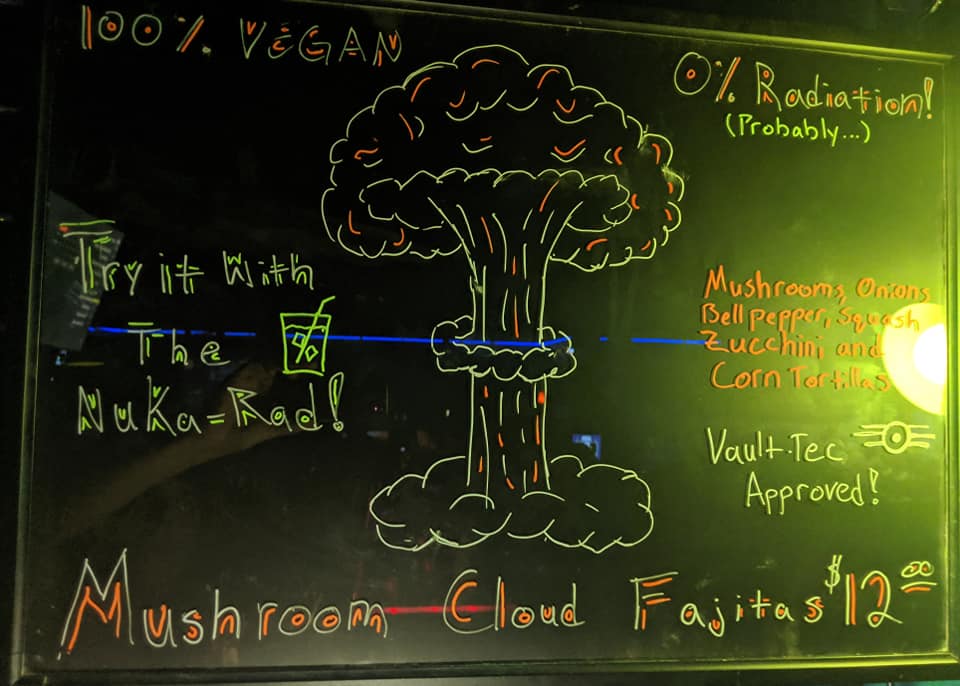 100% VEGAN
0% Radiation!
(Probably...)
Try it With
The
NuKa-Rad!
Mushrooms, Onions
Bell pepper, Squash
Zucchini, and
Corn Tortillas
Vault-Tec
Approved!
Mushroom Cloud Fajitas $12.00